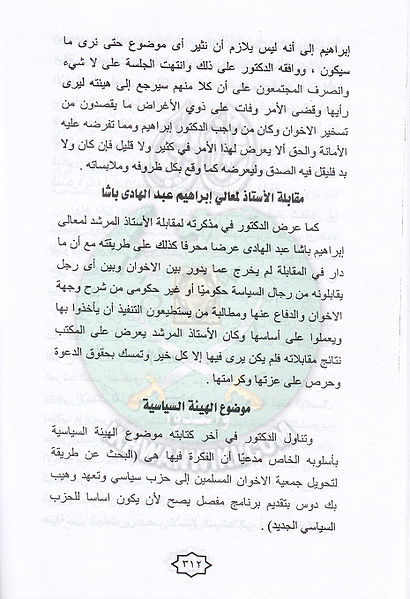 إبراهيم إلى أنه ليس يلازم أن نثير أى موضوع حتى نرى ما
سيكون ، ووافقه الدكتور على ذلك وانتهت الجلسة على لا شيء
وانصرف المجتمعون على أن كلا منهم سيرجع إلى هيئته ليرى
رأيها وقضى الأمر وفات على ذوي الأغراض ما يقصدون من
تسخير الاخوان وكان من واجب الدكتور إبراهيم ومما تفرضه عليه
الأمانة والحق ألا يعرض لهذا الأمر في كثير ولا قليل فإن كان ولا
بد فليقل فيه الصدق وليعرضه كما وقع بكل ظروفه وملابساته .
مقابلة الأستاذ لمعالي إبراهيم عبد الهادى باشا
كما عرض الدكتور في مذكرته لمقابلة الأستاذ المرشد لمعالى
إبراهيم باشا عبد الهادى عرضا محرفا كذلك على طريقته مع أن ما
دار في المقابلة لم يخرج عما يدور بين الاخوان وبين أى رجل
يقابلونه من رجال السياسة حكوميًا أو غير حكومى من شرح وجهة
الاخوان والدفاع عنها ومطالبة من يستطيعون التنفيذ أن يأخذوا بها
ويعملوا على أساسها وكان الأستاذ المرشد يعرض على المكتب
نتائج مقابلاته فلم يكن يرى فيها إلا كل خير وتمسك بحقوق الدعوة
وحرص على عزتها وكرامتها .
موضوع الهيئة السياسية
وتناول الدكتور في آخر كتابته موضوع الهيئة السياسية
بأسلوبه الخاص مدعيًا أن الفكرة فيها هى (البحث عن طريقة
لتحويل جمعية الاخوان المسلمين إلى حزب سياسي وتعهد وهيب
بك دوس بتقديم برنامج مفصل يصح لأن يكون اساسا للحزب
السياسي الجديد) .
٣١٢